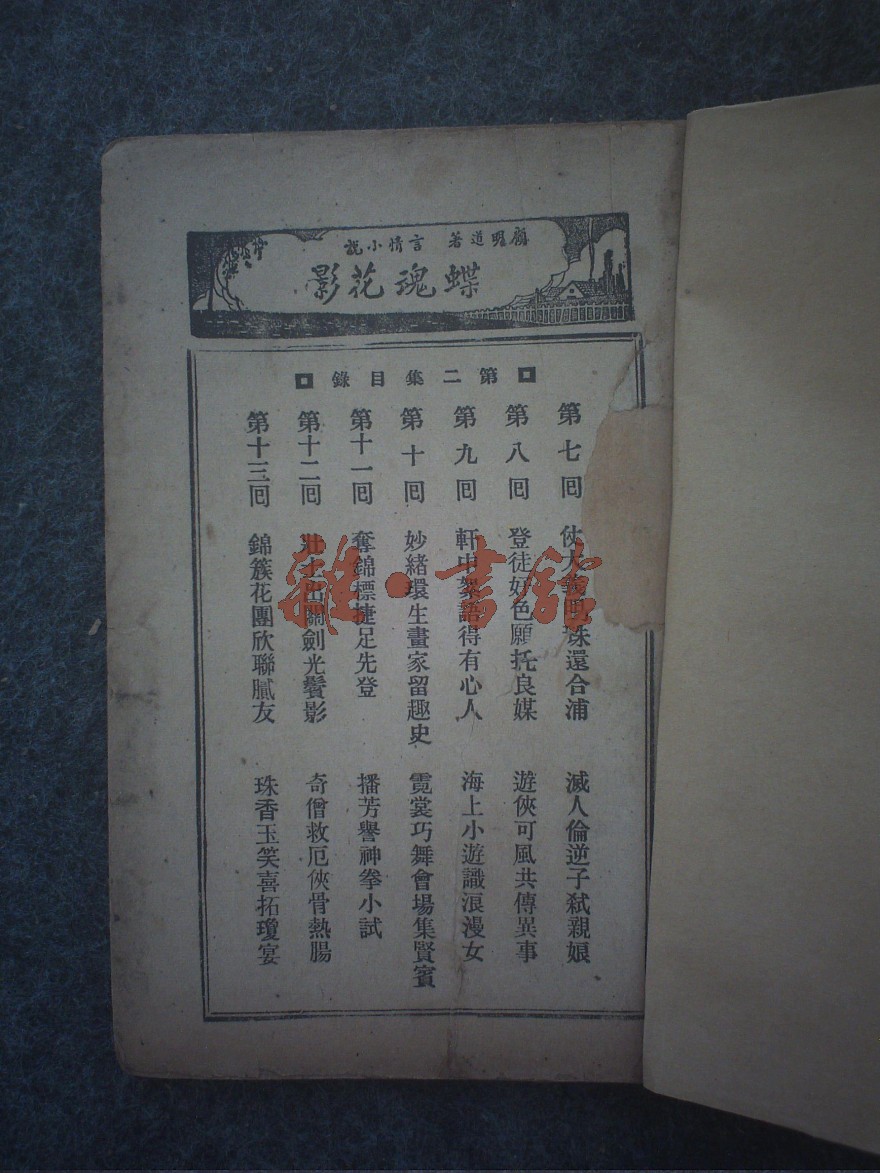 顧明道著 言情小說
蝶魂花影
第二集目錄
第七回 仗大義明珠還合浦 滅人倫逆子弒親娘
第八回 登徒好色願托良媒 遊俠可風共傳異事
第九回 軒中絮語得有心人 海上小遊識浪漫女
第十回 妙緒環生畫家留趣史 霓裳巧舞會場集賢賓
第十一回 奪錦標捷足先登 播芳譽神拳小試
第十二回 壯士出關劍光鬢影 奇僧救厄俠骨熱腸
第十三回 錦簇花團欣聯膩友 珠香玉笑喜拓瓊宴
雜·書館